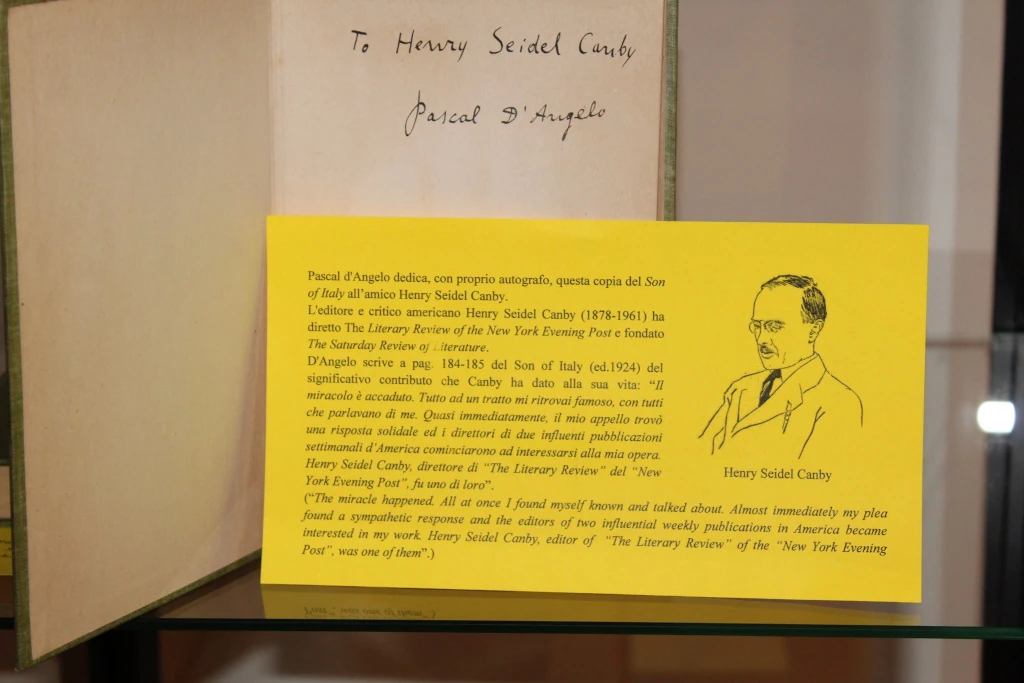 To Henry Seidel Canby
Pascal D'Angelo
Pascal d'Angelo dedica, con proprio autografo, questa copia del Son
of Italy all'amico Henry Seidel Canby.
L'editore e critico americano Henry Seidel Canby (1878-1961) ha
diretto The Literary Review of the New York Evening Post e fondato
The Saturday Review of Literature.
D'Angelo scrive a pag. 184-185 del Son of Italy (ed.1924) del
significativo contributo che Canby ha dato alla sua vita: “Il
miracolo è accaduto. Tutto ad un tratto mi ritrovai famoso, con tutti
che parlavano di me. Quasi immediatamente, il mio appello trovò
una risposta solidale ed i direttori di due influenti pubblicazioni
settimanali d'America cominciarono ad interessarsi alla mia opera.
Henry Seidel Canby, direttore di “The Literary Review” del “New
York Evening Post”, fu uno di loro”.
(“The miracle happened. All at once I found myself known and talked about. Almost immediately my plea
found a sympathetic response and the editors of two influential weekly publications in America became
interested in my work. Henry Seidel Canby, editor of “The Literary Review” of the “New York Evening
Post”, was one of them”.)
Henry Seidel Canby